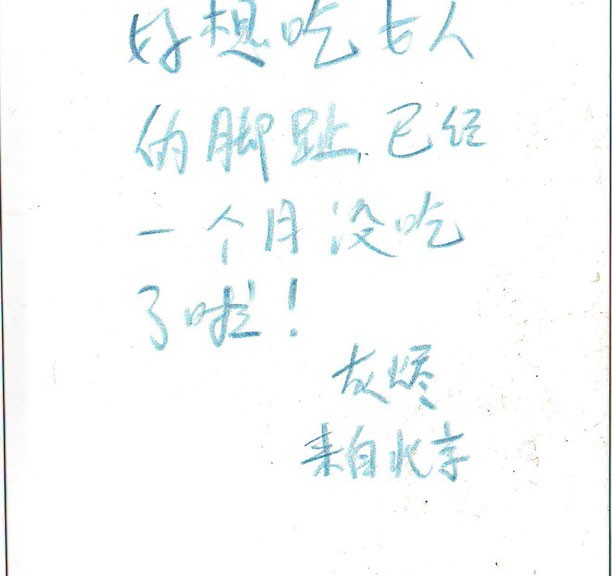 好想吃女人
的脚趾,已经
一个月没吃
了啦！
灰烬
来自北京